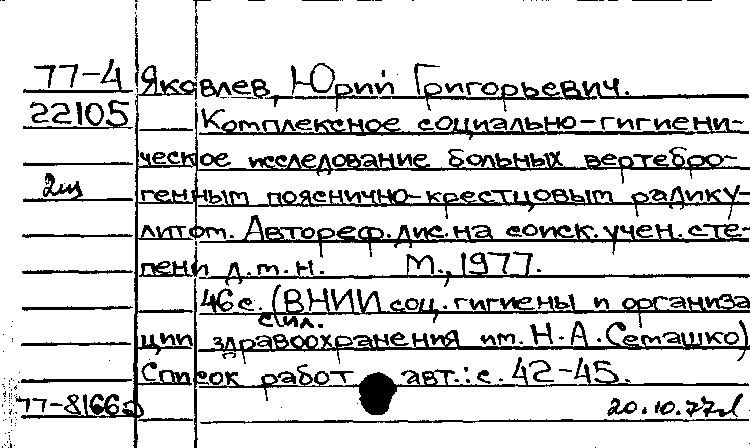 77-4 Яковлев, Юрий Григорьевич.
22105 Комплексное социально-гигиени-
ческое исследование больных вертебро-
2щ генным пояснично-крестцовым радику-
литом. Автореф. дис. на соиск. учен. сте-
пени д.м.н. М., 1977.
46 с. (ВНИИ соц. гигиены и организа
с ил.
ции здравоохранения им. Н.А. Семашко)
Список работ авт.: с. 42-45.
77-8166 20.10.77